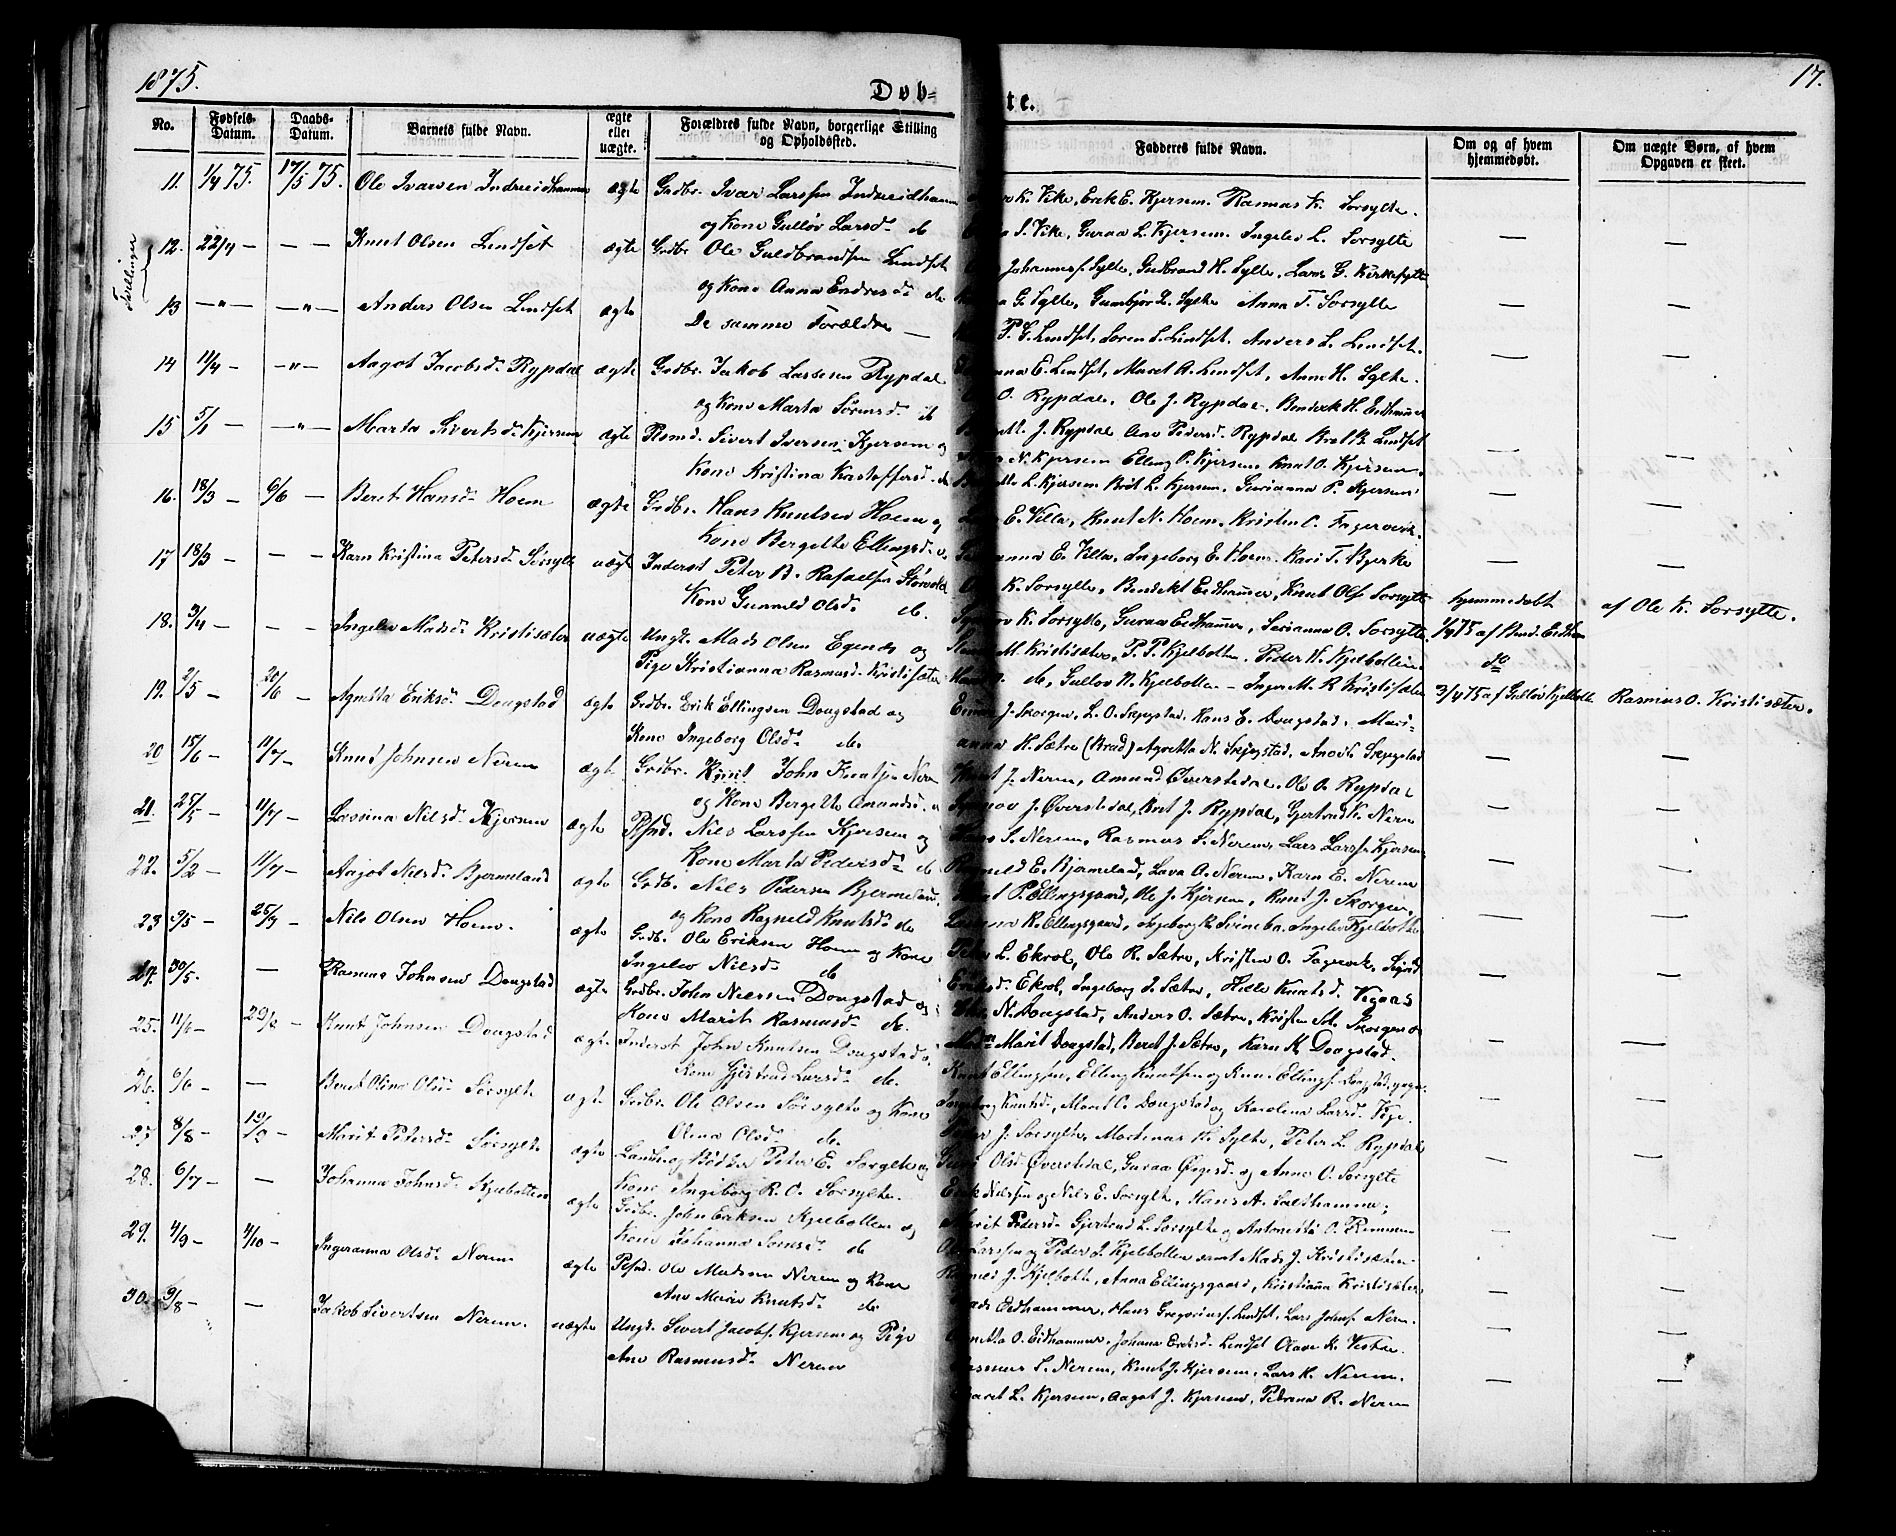 1875.
Døb-
te.
17.
No.
Fødsels-Datum.
Daabs-Datum.
Barnets fulde Navn.
ægte eller uægte.
Forældres fulde Navn, borgerlige Stilling og Opholdssted.
Fadderes fulde Navn.
Om og af hvem hjemmedøbt.
Om uægte Børn, af hvem Opgaven er skeet.
Tvillinger
11. 1/4 75. 17/5 75. Ole Ivarsen Indreeidhammer ægte Grdbr. Ivar Larssen Indreeidhamm
og Kone Gulløv Larsd. de
K. Vike, Erik E. Kjersem. Rasmus K. Sorsylte.
S. Vike, Guraa L. Kjersem. Ingelev L. Sorsylte —
12. 22/4 — — — Knut Olsen Lindset ægte Grdbr. Ole Guldbrandsen Lindset
og Kone Anna Endresd. de
Johannesf. Sylte, Gudbrand H. Sylte, Lars G. Kirkesylte
G. Sylte, Gunbjør L. Sylte Anna T. Sorsylte —
13 —"— —"— Anders Olsen Lindset ægte De samme Forældre —
P. G. Lindset, Soren S. Lindset, Anders L. Lindset.
E. Lindset, Marit A. Lindset, Anne H. Sylte. —
14 11/4 — —"— Aagot Jacobsd. Rypdal ægte Grdbr. Jakob Larssen Rypdal
og Kone Marta Sørensd. de
O. Rypdal, Ole J. Rypdal, Bendik H. Eidhammer
J. Rypdal Ane Pedersd. Rypdal Brit B. Lindset —
15 5/1 — —"— Marta Sivertsd. Kjersem ægte Plsmd. Sivert Iversen Kjersem og
Kone Kristina Kristoffersd. de
N. Kjersem Elling P. Kjersem Knut O. Kjersem.
L. Kjersem Brit L. Kjersem, Gurianna P. Kjersem —
16. 18/3 — 6/6 — Beret Hansd. Hoem ægte Grdbr. Hans Knutsen Hoem og
Kone Bergitte Ellingsd. de
E. Villa, Knut N. Hoem, Kristen O. Fagervik.
E. Villa, Ingeborg E. Hoem Kari T. Bjerke —
17 18/3 — — — Karn Kristina Petersd. Sørsylte uægte Inderst Peter B. Rafaelsen Størvold
Kone Gunneld Olsd. de.
K. Sorsylte, Bendikt Eidhammer, Knut Ols. Sorsylte
K. Sorsylte, Guraa Eidhammer, Serianna O. Sorsylte.
hjemmedøbt
1/4 75 af Bend. Eidham
af Ole K. Sorsylte.
18. 3/4 — — — Ingelev Madsd. Kristisæter uægte Ungk. Mads Olsen Egenæs og
Pige Kristianna Rasmusd. Kristisæter
M. Kristisæter, P. P. Kjelbotten. Peder N. Kjelbotten
de, Gulløv N. Kjelbotten — Inger M. R. Kristisæter
do
3/4 75 af Gulløv Kjelbotten
Rasmus O. Kristisæter.
19. 2/5 — 20/6 — Agnetta Eriksd. Dougstad ægte Grdbr. Erik Ellingsen Dougstad og
Kone Ingeborg Olsd. de.
J. Skorgen, L. O. Skogstad. Hans E. Dougstad. Mari-
anna H. Sætre (Brud) Agnetta N. Skogstad. —
20 15/6 — 11/7 — Knud Johnsen Nerem ægte Grdbr. John Knutsen Nerem
og Kone Bergitte Amundsd.
Knut J. Nerem, Amund Øverstedal, Ole O. Rypdal
J. Øverstedal, Knut J. Rypdal, Gjertrud K. Nerem —
21. 25/5 — 11/7 — Lassina Nilsd. Kjersem ægte Plsmd. Nils Larssen Kjersem og
Kone Marta Pedersd. de
Hans S. Nerem, Rasmus S. Nerem, Lars Larss. Kjersem
Ragneld E. Bjermeland, Lava O. Nerem, Karn E. Nerem —
22. 5/2 — 11/7 — Aagot Nilsd. Bjermeland ægte Grdbr. Nils Pedersen Bjermeland
og Kone Ragneld Knutsd. de
P. Ellingsgaard, Ole J. Kjersem, Knut J. Skorgen,
R. Ellingsgaard, Ingeborg R. Svinebø. Ingelev Kjelbotten —
23 9/5 — 25/7 — Nils Olsen Hoem. ægte Grdb. Ole Eriksen Hoem og Kone
Ingelev Nilsd. de
L. Ekrol, Ole R. Sætre, Kristen O. Fagervik, Sigrid
Eriksd. Ekrol, Ingeborg J. Sætre, Helle Knutsd. Vignæs —
24. 30/5. — Rasmus Johnsen Dougstad ægte Grdbr. John Nilssen Dougstad og
Kone Marit Rasmusd. de.
N. Dougstad, Anders O. Sætre, Kristen M. Skorgen og
Marit Dougstad, Beret J. Sætre, Karn K. Dougstad. —
25. 11/6 — 29/8 — Knut Johnsen Dougstad ægte Inderst John Knutsen Dougstad og
Kone Gjertrud Larsd. de.
Knut Ellingsen, Elling Knutsen og Knut Ellings. Dougstad,
Ingeborg Knutsd., Marit O. Dougstad og Karolina Larsd. Vige. —
26. 6/6 — — Beret Olina Olsd. Sørsylte ægte Grdbr. Ole Olsen Sørsylte og Kone
Olina Olsd. de.
J. Sorsylte, Martinus H. Sylte, Peter L. Rypdal
Olsd Øverstedal, Guraa Østgesd. og Anne O. Sorsylte —
27 8/8 — 19/9 — Marit Petersd. Sørsylte ægte Landh. og Bødker Peter E. Sorsylte og
Kone Ingeborg R. O. Sorsylte.
Erik Nilssen og Nils E. Sorsylte, Hans A. Salthammer;
Marit Pedersd. Gjertrud L. Sorsylte og Antonetta O. Remmem —
28. 6/7 — — Johanna Johnsd. Kjelbotten ægte Grdbr. John Eriksen Kjelbotten og
Kone Johanna Sørensd. de
Larssen og Peder J. Kjelbotten samt Mads J. Kristisæter.
J. Kjelbott, Anna Ellingsgaard, Kristianna Kristisæter —
29. 4/9 — 4/10 — Ingeranna Olsd. Nerem ægte Plsmd. Ole Madsen Nerem og Kone
Ane Marie Knutsd. de
Mads Eidhammer, Hans Gregoriuss. Lindset, Lars Johns. Nerem.
O. Eidhammer. Johana Eriksd. Lindset Olava K. Vestre. —
30. 9/8 — — Jakob Sivertsen Nerem. uægte Ungk. Sivert Jacobs. Kjersem og Pige
Ane Rasmusd. Nerem
Rasmus S. Nerem, Knut J. Kjersem, Lars K. Nerem.
Maret L. Kjersem, Aagot J. Kjersem, Pedrena R. Nerem —